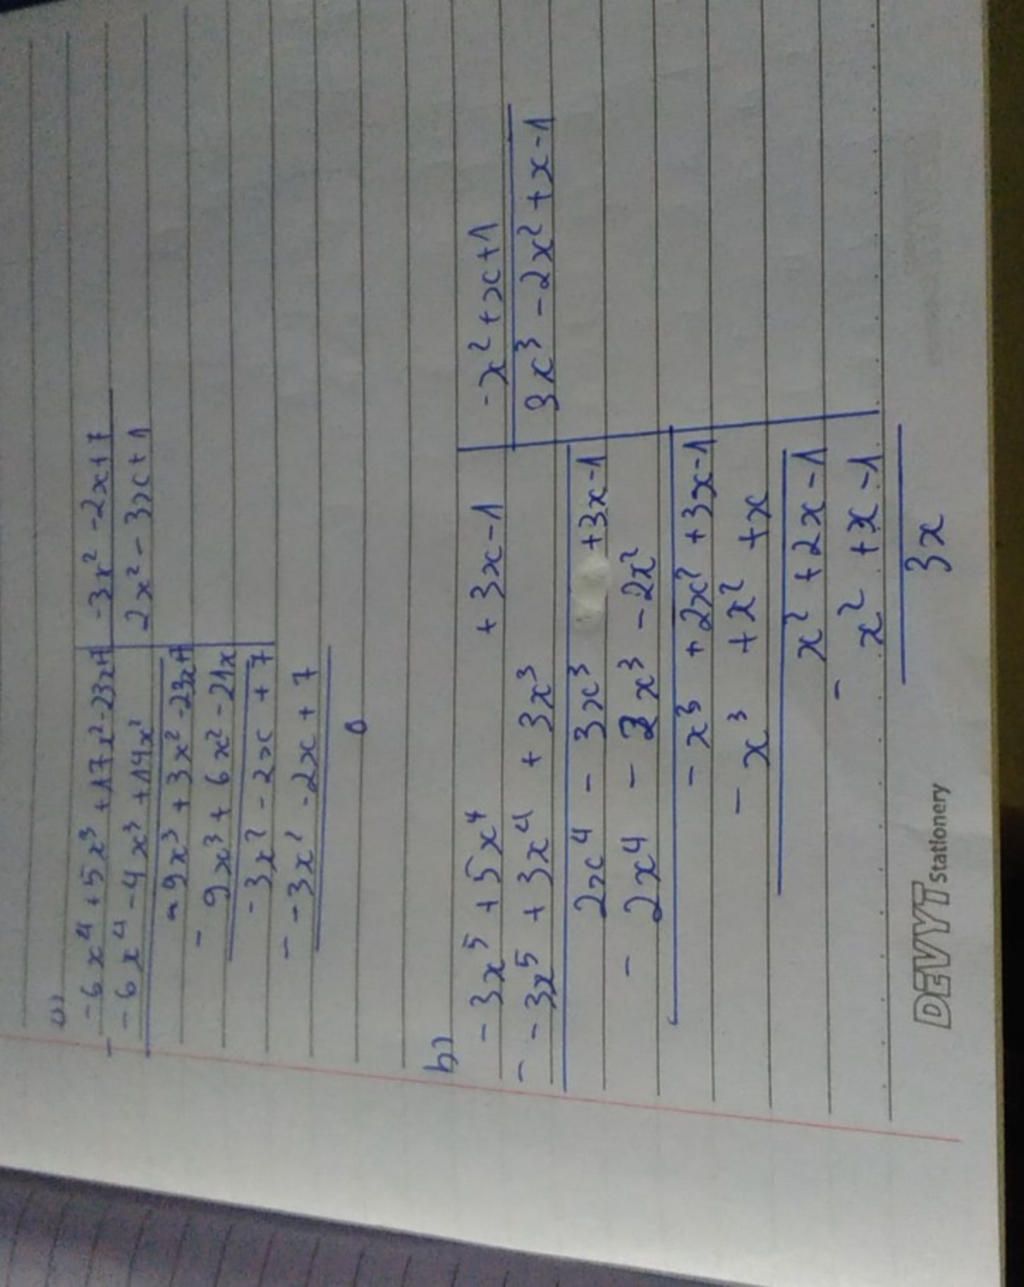 a)
-6x⁴+5x³+17x²-23x+7 | -3x²-2x+7
- -6x⁴-4x³+14x² | 2x²-3x+1
-9x³+3x²-23x+7
- 9x³+6x²-21x
-3x²-2x+7
- -3x²-2x+7
0
b)
-3x⁵+5x⁴ +3x-1 | -x²+x+1
- -3x⁵+3x⁴+3x³ | 3x³-2x²+x-1
2x⁴-3x³ +3x-1
- 2x⁴-2x³-2x²
-x³+2x²+3x-1
- x³+x²+x
x²+2x-1
- x²+x-1
3x
DEVYT Stationery